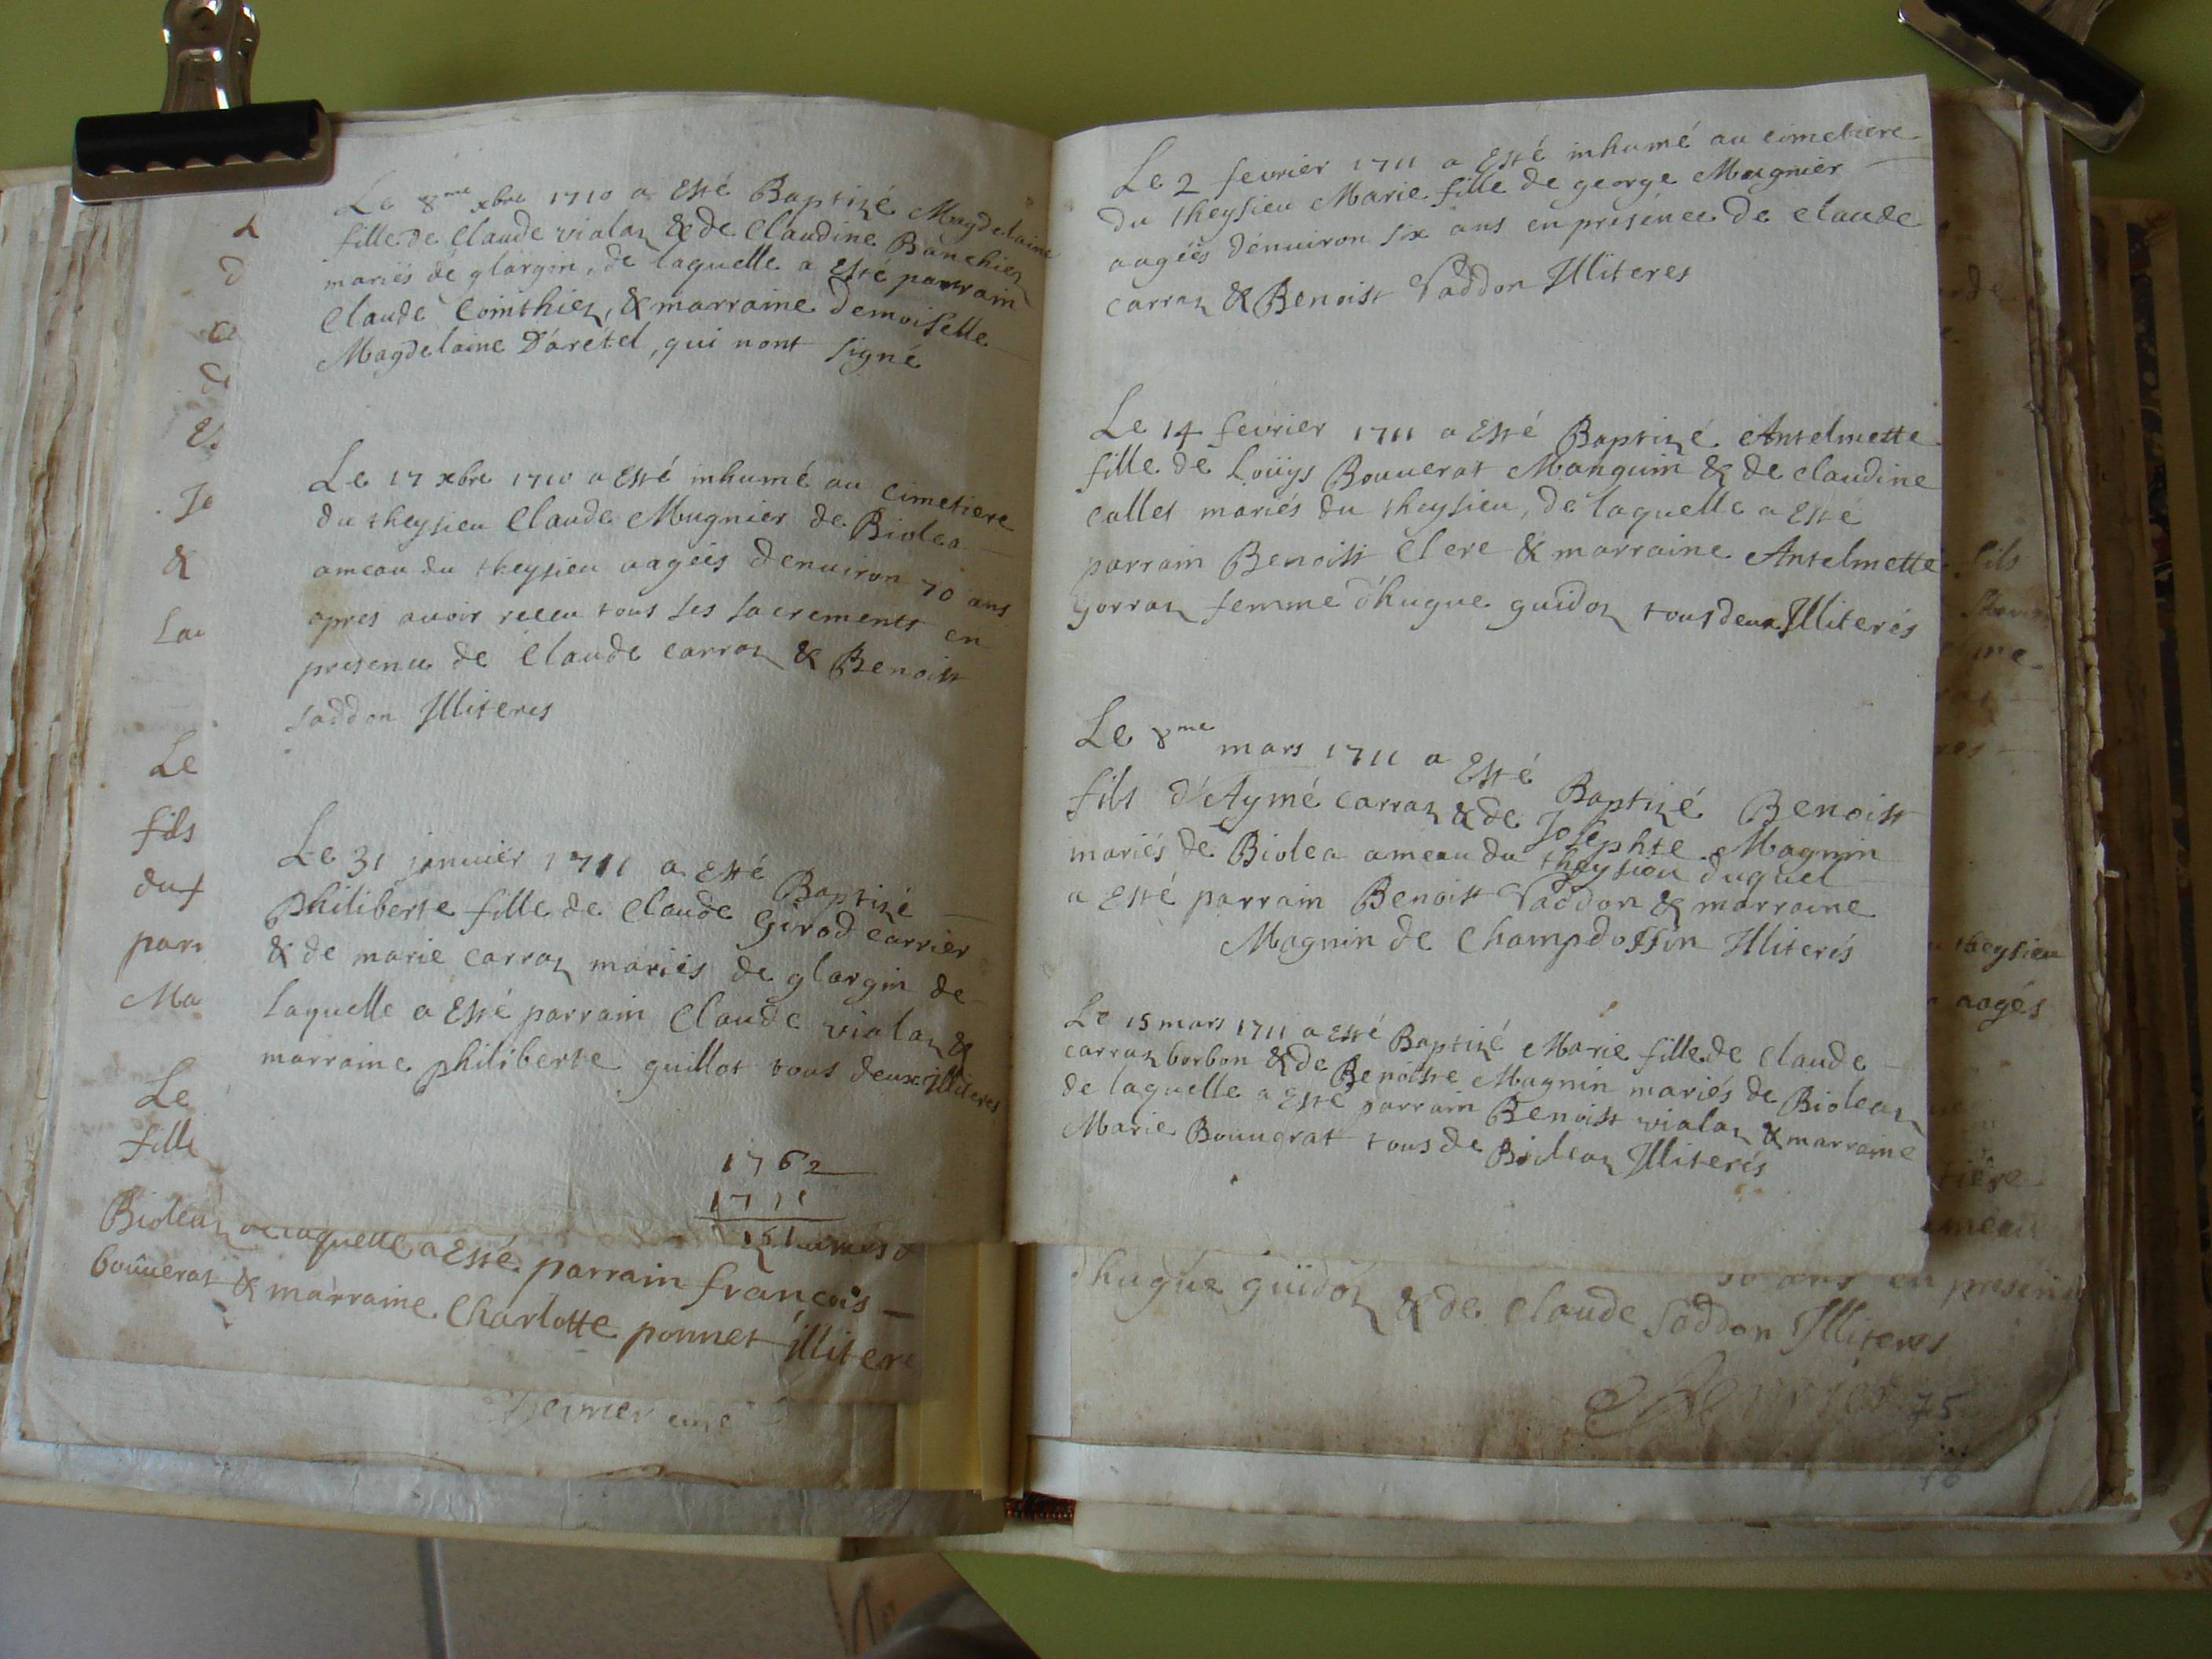 Le 8me xbre 1710 a Esté Baptizé Magdelaine
fille de Claude vialaz & de Claudine Banchiez
mariés de glargin, de laquelle a Esté parrain
Claude Cointhiez, & marraine demoiselle
Magdelaine D'arétel, qui nont signé
Le 17 xbre 1710 a Esté inhumé au cimetiere
du theysieu Claude Mugnier de Biolea
ameau du theysieu aagéés denuiron 70 ans
apres auoir receu tous ses sacrements en
presence de Claude carraz & Benoist
saddon Illiteres
Le 31 januier 1711 a Esté Baptizé
philiberte fille de Claude Girod carrier
& de marie carraz mariés de glargin de
laquelle a Esté parrain Claude vialaz &
marraine philiberte guillot tous deux illiteres
1762
1711
151
Le
fils
du
parr
Ma
Le
fille
Bioleaz de laquelle a Esté parrain francois
boûuerat & marraine Charlotte ponnet illitere
Le 2 feurier 1711 a Esté inhumé au cimetiere
du theysieu Marie fille de george Mugnier
aagéés dénuiron six ans en présénce de claude
carraz & Benoist Saddon Illiteres
Le 14 feúrier 1711 a Esté Baptizé Antelmette
fille de Loüys Bouuerat Manguin & de claudine
callet mariés du theysieu, de laquelle a Esté
parrain Benoist Clere & marraine Antelmette
gorraz femme d'hugue guidoz tous deux Illiterés
Le 8me mars 1711 a Esté Baptizé Benoist
fils d'Aymé carraz & de Josephte Magnin
mariés de Biolea ameau du theysieu duquel
a Esté parrain Benoist Saddon & marraine
Magnin de Champdossin Illiterés
Le 15 mars 1711 a Esté Baptizé Marie fille de Claude
carraz borbon & de Benoiste Magnin mariés de Bioleaz
de laquelle a Esté parrain Benoist vialaz & marraine
Marie Bouuerat tous de Bioleaz Illiterés
fils
theysieu
aagés
ameau
50 ans en présénc
d'hugúe guidoz & de Claude Saddon Illiteres
75